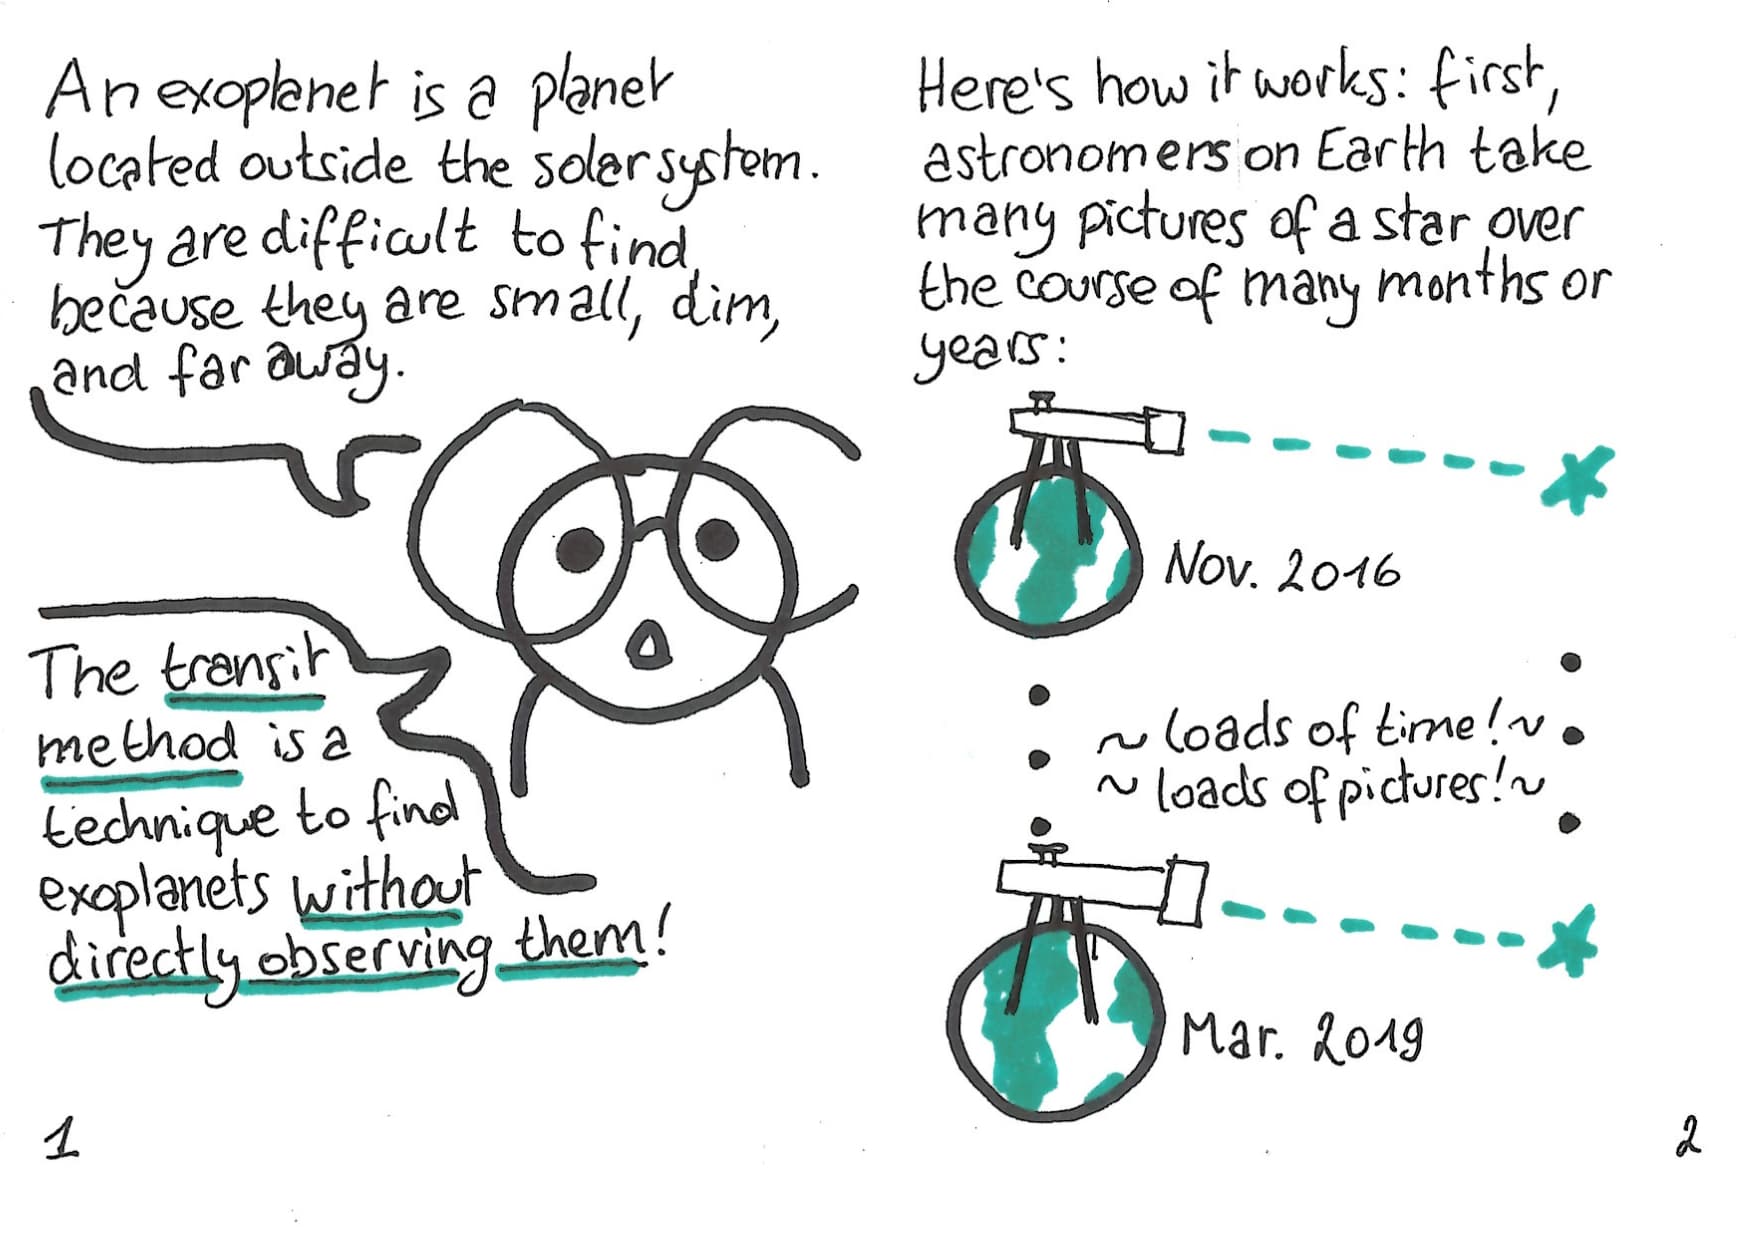 An exoplanet is a planet
located outside the solar system.
They are difficult to find
because they are small, dim,
and far away.
The transit
method is a
technique to find
exoplanets without
directly observing them!
1
Here's how it works: first,
astronomers on Earth take
many pictures of a star over
the course of many months or
years:
Nov. 2016
~ loads of time! ~
~ loads of pictures! ~
Mar. 2019
2